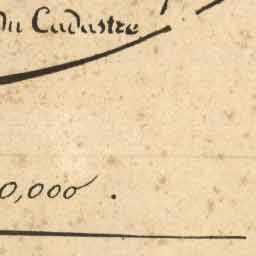 du Cadastre
0,000 .